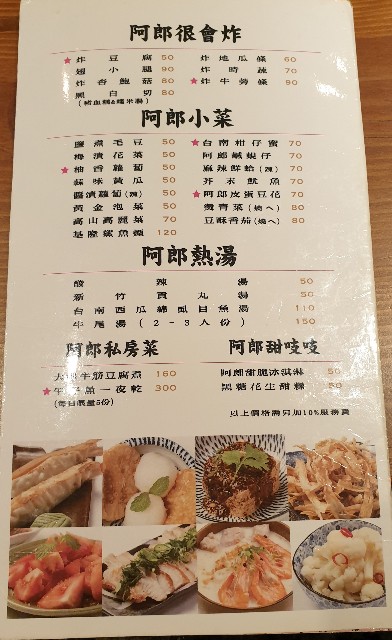 阿郎很會炸
★炸豆腐 50 炸地瓜條 60
翅小腿 90 炸時蔬 70
炸杏鮑菇 80 ★炸牛蒡條 90
黑白切 80
(豬血糕&糯米腸)
阿郎小菜
鹽煮毛豆 50 ★台南柑仔蜜 70
梅漬花菜 50 阿郎鹹蜆仔 70
★柚香蘿蔔 50 麻辣鮮蛤(辣) 70
蒜味黃瓜 50 芥末魷魚 70
醬漬蘿蔔(辣) 50 ★阿郎皮蛋豆花 70
黃金泡菜 50 燙青菜 80
高山高麗菜 70 豆酥番茄 80
120
阿郎熱湯
酸辣湯 50
新竹貢丸湯 50
台南西瓜綿虱目魚湯 110
牛尾湯(2-3人份) 150
阿郎私房菜 阿郎甜吱吱
牛筋豆腐煮 160 阿郎甜脆冰淇淋 50
★一夜乾 300 黑糖花生甜粿 50
(每日限量5份)
以上價格需另加10%服務費